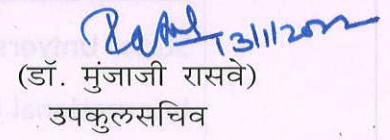 13/1/2022
(डॉ. मुंजाजी रासवे)
उपकुलसचिव